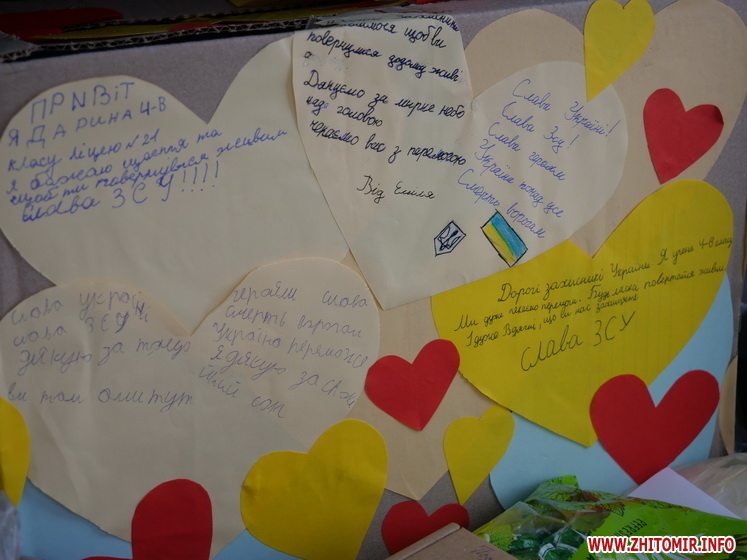 ПРИВІТ
Я ДАРИНА 4-В
класу ліцею №21
я бажаю щастя та
щоб ти повернувся живим
Слава ЗСУ!!!!
щоб ви
повернулися додому живі
Дякуємо за мирне небо
над головою
чекаємо вас з перемогою
Від Еміля
Слава Україні!
Слава Зсу!
Слава героям
Україна понад усе
Смерть ворогам
Дорогі захисники України. Я учень 4-В класу
Ми дуже перемоги. Будь ласка повертайся живим
І дуже що ви нас захищаєте
Слава ЗСУ
слава україні
слава ЗСУ
дякую за
ви там а ми тут
героям слава
смерть ворогам
Україна переможе
Я дякую за
WWW.ZHITOMIR.INFO